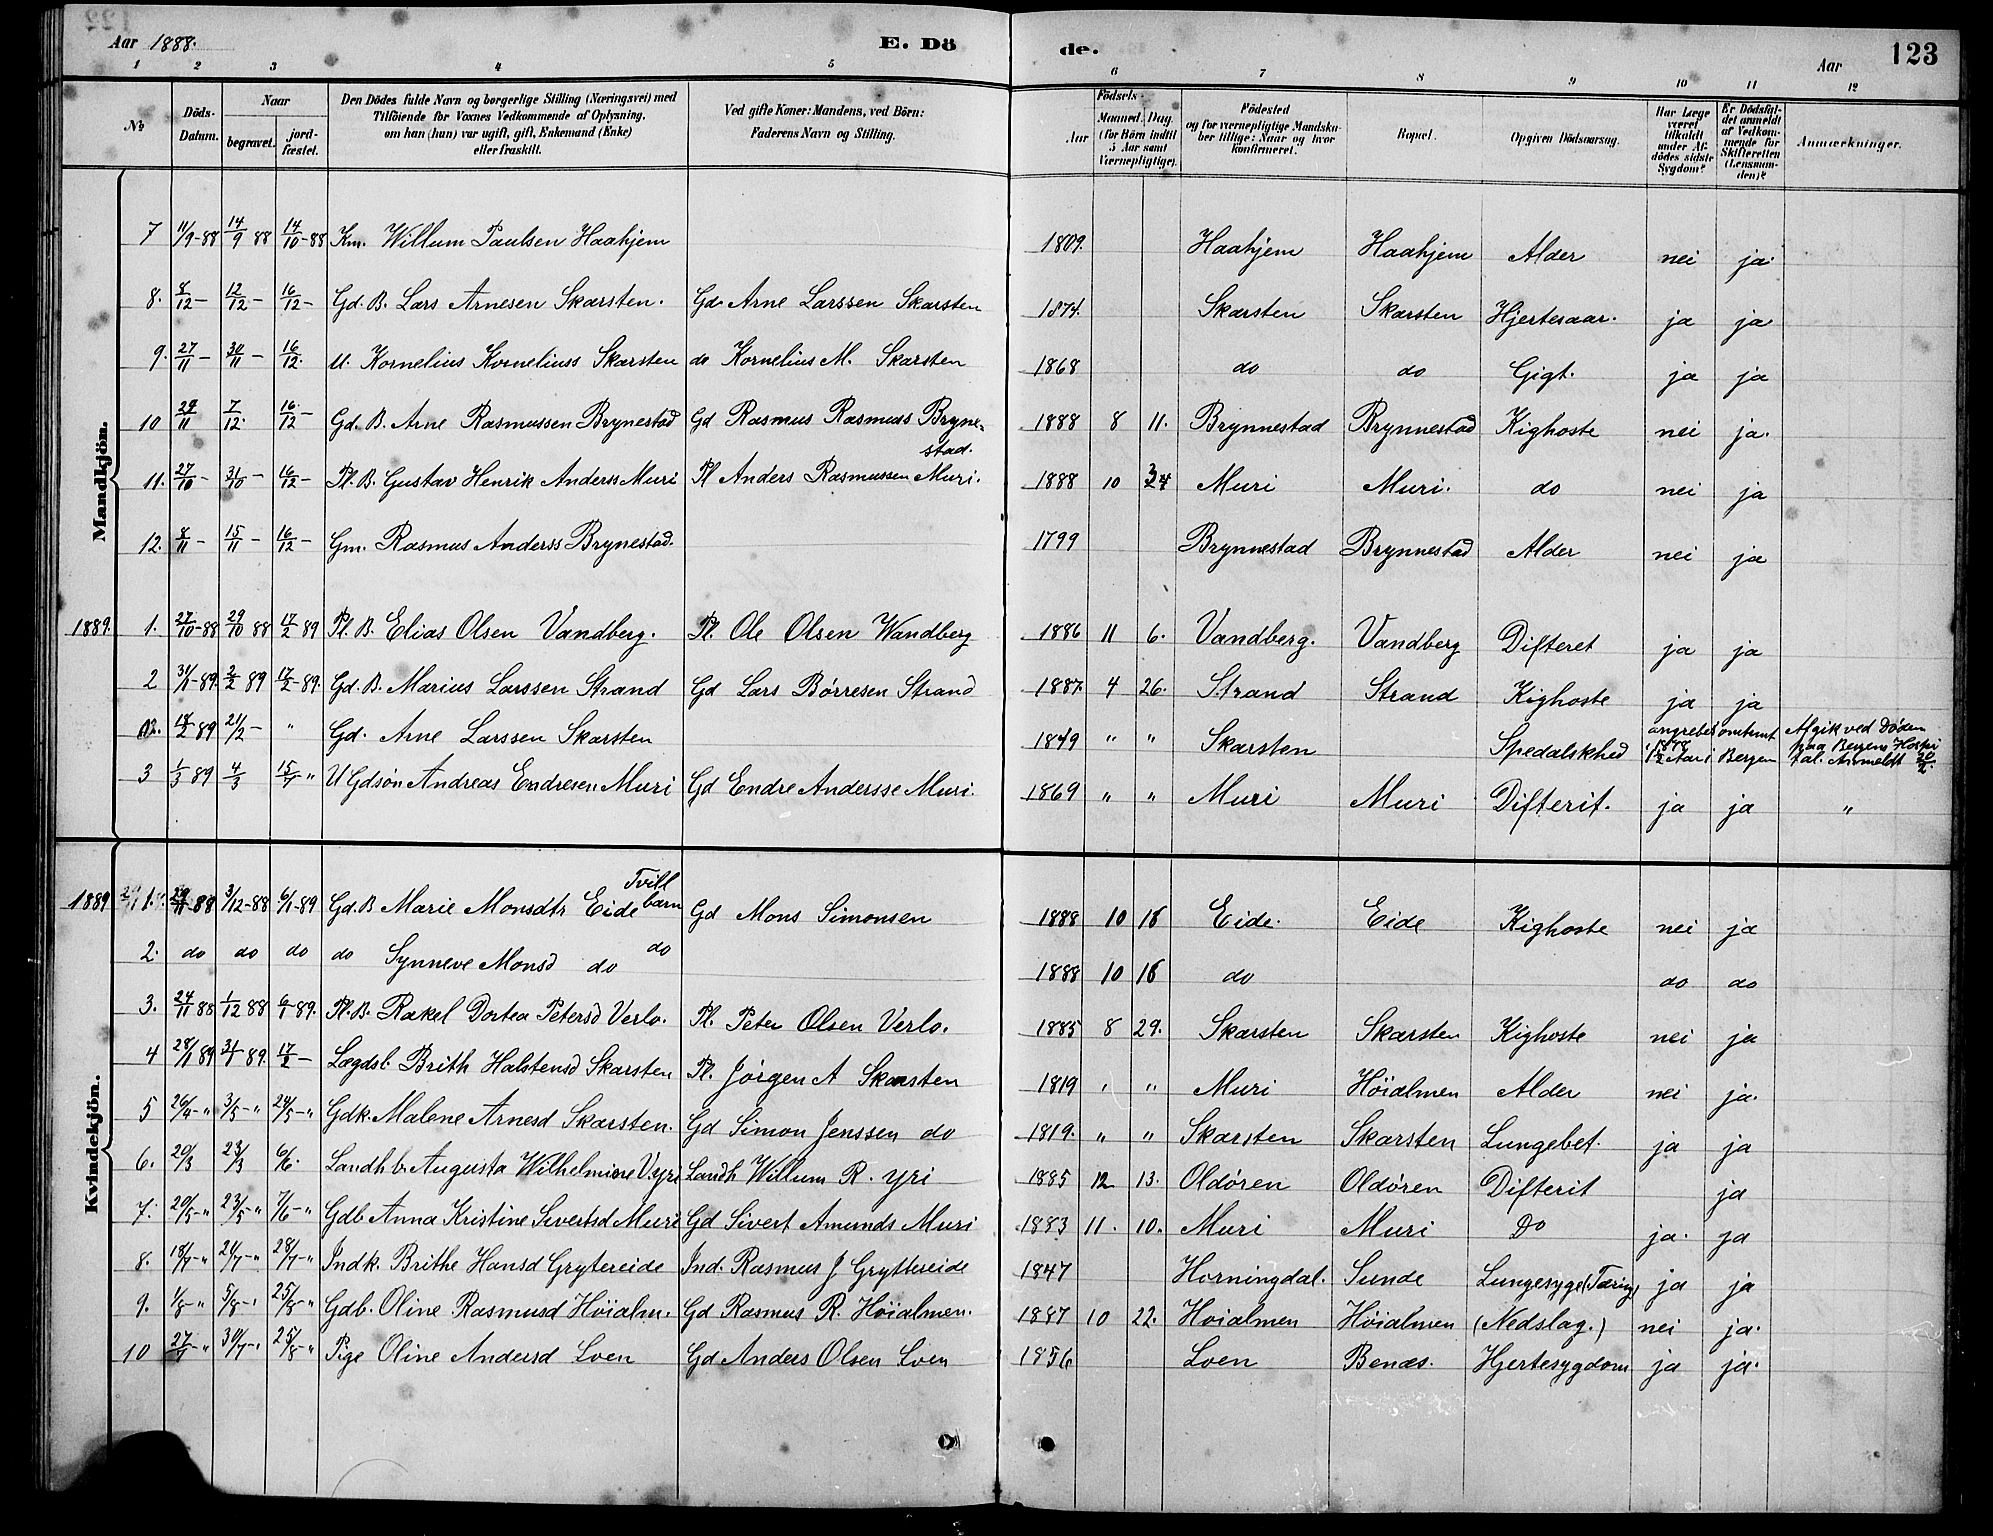 Aar 1888. E. Dö de. Aar 123
1 2 3 4 5 6 7 8 9 10 11 12
No Döds-Datum. Naar begravet. jordfæstet. Den Dödes fulde Navn og borgerlige Stilling (Næringsvei) med Tilföiende for Voxnes Vedkommende af Oplysning, om han (hun) var ugift, gift, Enkemand (Enke) eller fraskilt. Ved gifte Koner: Mandens, ved Börn: Faderens Navn og Stilling. Födsels- Aar Maaned. Dag. (for Börn indtil 5 Aar samt Værnepligtige). Födested og for værnepligtige Mandskaber tillige: Naar og hvor konfirmeret. Bopæl. Opgiven Dödsaarsag. Har Læge været tilkaldt under Afdödes sidste Sygdom? Er Dödsfaldet anmeldt af Vedkommende for Skifteretten (Lensmanden)? Anmærkninger.
Mandkjön.
7 11/9-88 14/9 88 14/10-88 Km. Willum Paulsen Haahjem 1809. Haahjem Haahjem Alder nei ja.
8. 8/12- 12/12- 16/12- Gd. B. Lars Arnesen Skarsten. Gd. Arne Larssen Skarsten 1874. Skarsten Skarsten Hjertesaar. ja ja
9. 27/11- 30/11- 16/12. U. Kornelius Korneliuss Skarsten do Kornelius M. Skarsten 1868 do do Gigt. ja ja
10 29/11 7/12. 16/12- Gd. B. Arne Rasmussen Brynestad Gd Rasmus Rasmuss Brynestad. 1888 8 11. Brynnestad Brynnestad Kighoste nei ja.
11. 27/10- 31/10- 16/12- Pl. B. Gustav Henrik Anderss Muri Pl Anders Rasmussen Muri. 1888 10 24 Muri Muri. do nei ja
12. 8/11- 15/11- 16/12- Gm. Rasmus Anderss Brynestad. 1799 Brynnestad Brynnestad Alder nei ja
1889. 1. 27/10-88 29/10 88 17/2 89 Pl. B. Elias Olsen Vandberg. Pl. Ole Olsen Wandberg 1886 11 6. Vandberg. Vandberg Difteret ja ja
2 31/1-89 2/2 89 17/2-89. Gd. B. Marius Larssen Strand Gd Lars Börresen Strand 1887. 4 26. Strand Strand Kighoste ja ja
18/2 89 21/2- " Gd. Arne Larssen Skarsten 1849 " " Skarsten Spedalskhed angrebet 1878 1 1/2 Aar i omtrent Bergen Afgik ved Döden paa Bergens Hospital. Anmeldt 20/2.
3 1/3 89 4/3 15/7 " U Gdsön Andreas Endresen Muri Gd Endre Andersse Muri. 1869 " " Muri Muri Difterit. ja ja "
Kvindekjön.
1889 1. 29/11 88 3/12-88 6/1-89 Gd. B Marie Monsdtr Eide Tvill barn Gd Mons Simonsen 1888 10 16 Eide. Eide Kighoste nei ja
2. do do do do Synneve Monsd do do 1888 10 16 do do do
3. 24/11 88 1/12 88 6/1-89. Pl. B. Rakel Dortea Petersd Verlo. Pl. Peter Olsen Verlo. 1885 8 29. Skarsten Skarsten Kighoste nei ja
4 28/1 89 31/1-89. 17/2- Lægdsl. Brith Halstensd Skarsten Pl. Jörgen A Skarsten 1819 " " Muri Höialmen Alder nei ja.
5 26/4-" 3/5-" 24/5-" Gdk. Malene Arnesd Skarsten. Gd Simon Jenssen do 1819. " " Skarsten Skarsten Lungebet. ja ja
6. 20/3 23/3 6/6. Landh. b. Augusta Wilhelmine V. Yri Landh Willum R. Yri 1885 12 13. Oldören Oldören Difterit ja
7. 20/5-" 23/5-" 7/6-" Gdb Anna Kristine Sivertsd Muri Gd Sivert Amunds Muri 1883 11. 10. Muri Muri Do ja. ja
8. 18/7-" 21/7-" 28/7-" Indk. Brithe Hansd Grytereide Ind. Rasmus J Gryttereide 1847 Horningdal. Sunde Lungesyge (Tæring) ja ja
9. 1/8-" 5/8-" 25/8-" Gdb. Oline Rasmusd Höialm. Gd Rasmus R. Höialmen. 1887 10 22. Höialmen Höialmen (Nedslag.) nei ja.
10 27/7-" 30/7-" 25/8-" Pige Oline Andersd Loen Gd Anders Olsen Loen 1856 Loen Benæs. Hjertesygdom ja ja.